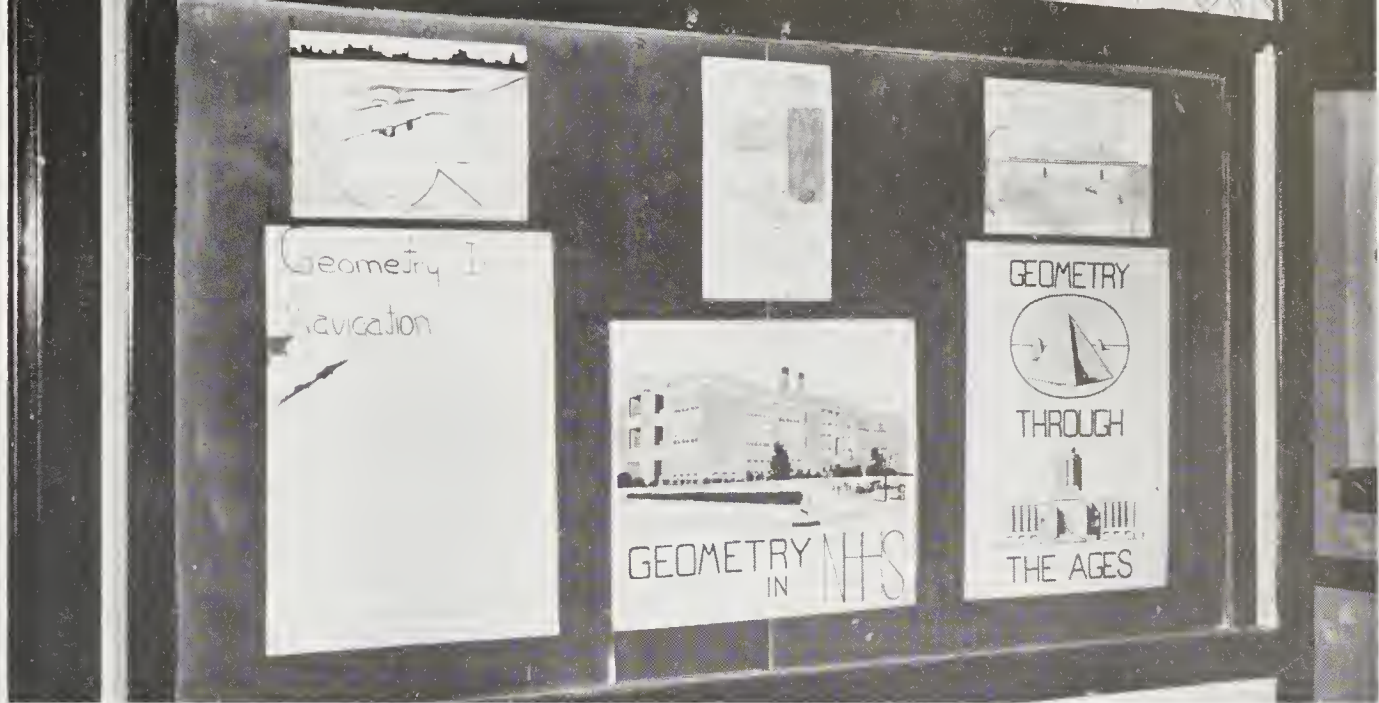 Geometry I
avication
GEOMETRY
IN NHS
GEOMETRY
THROUGH
THE AGES